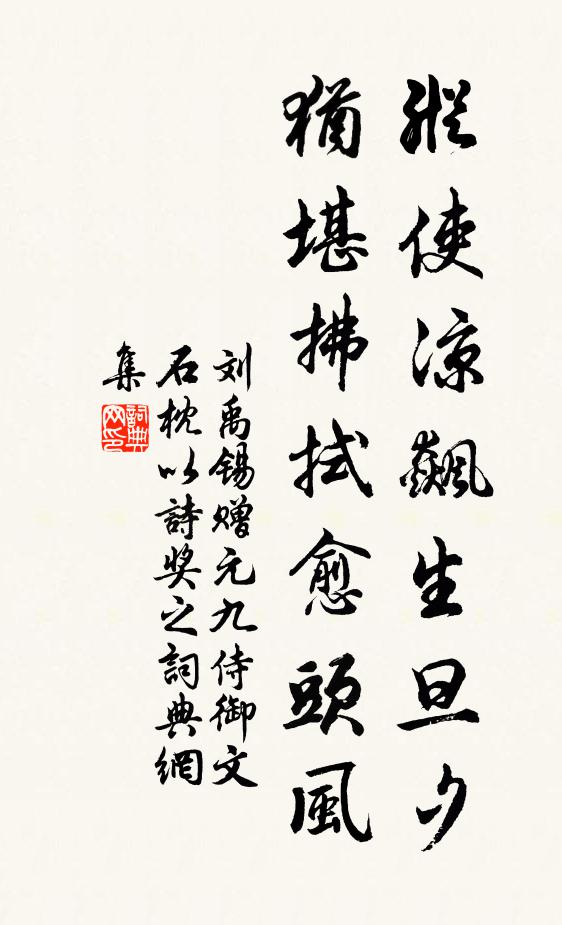 縱使凉飆生旦夕
猶堪拂拭愈頭風
刘禹锡赠元九侍御文
石枕以詩奖之詞典網
集
詞典
网印